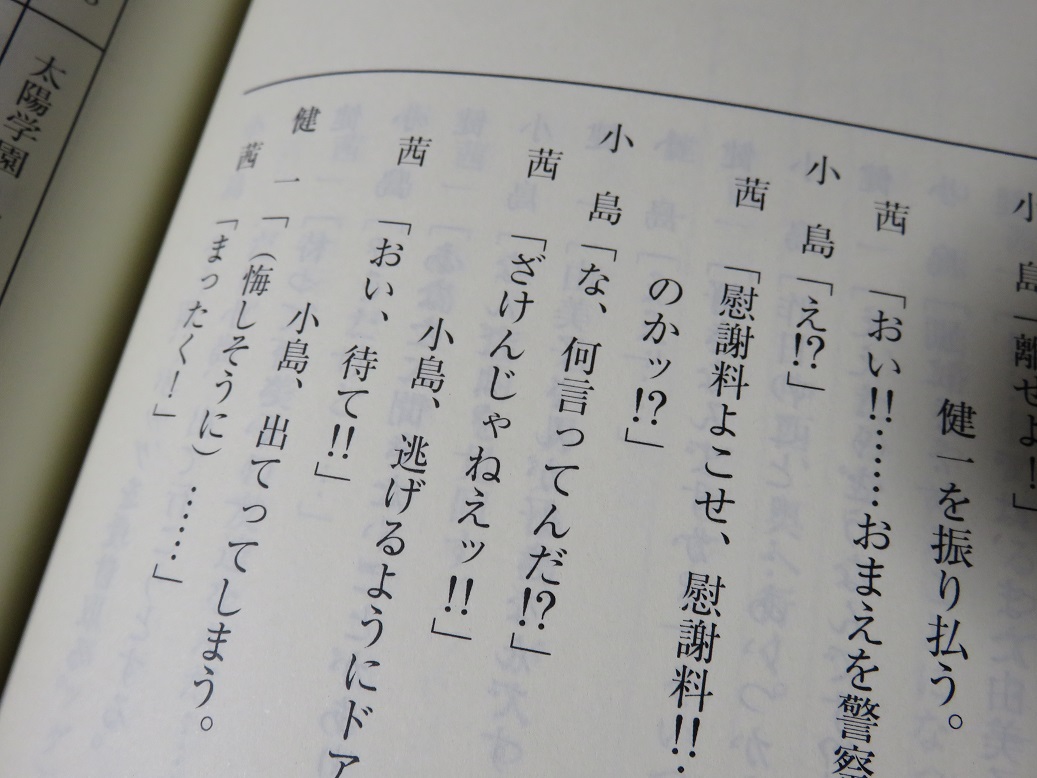 小島「離せよ！」
健一を振り払う。
茜「おい!!……おまえを警察
小島「え!?」
茜「慰謝料よこせ、慰謝料!!
のかッ!?」
小島「な、何言ってんだ!?」
茜「ざけんじゃねえッ!!」
小島、逃げるようにドア
茜「おい、待て!!」
小島、出てってしまう。
健一「（悔しそうに）……」
茜「まったく！」
太陽学園